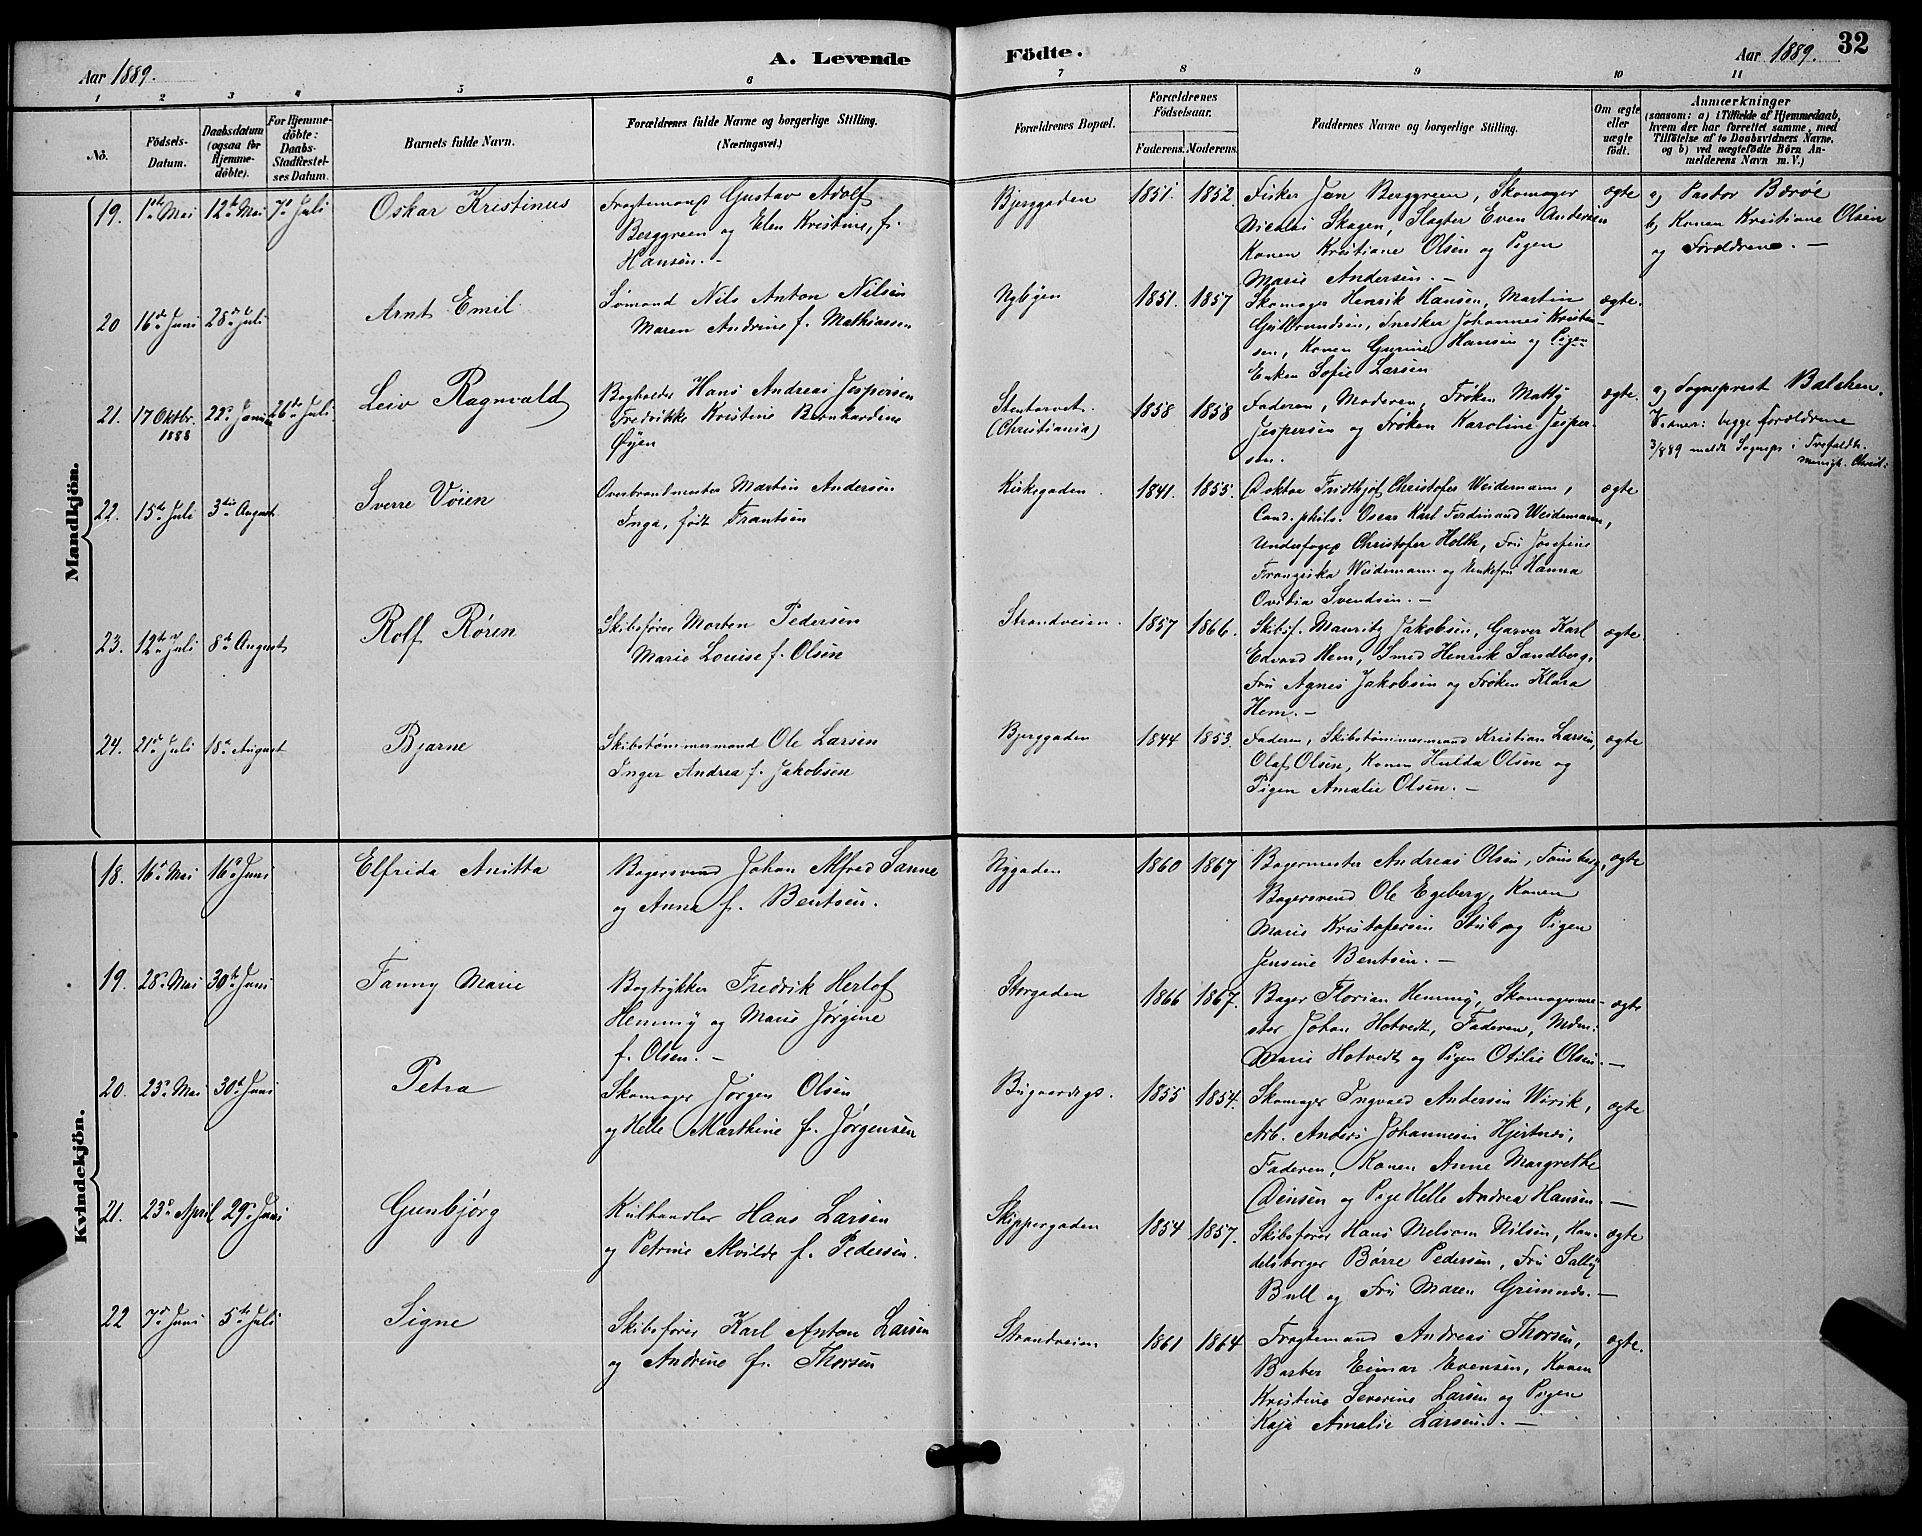 Aar 1889.
A. Levende Födte.
Aar 1889.
32
1 2 3 4 5 6 7 8 9 10 11
No.
Födsels-
Datum.
Daabsdatum
(ogsaa for
Hjemme-
döbte).
For Hjemme-
döbte:
Daabs-
Stadfæstel-
ses Datum.
Barnets fulde Navn.
Forældrenes fulde Navne og borgerlige Stilling.
(Næringsvei.)
Forældrenes Bopæl.
Forældrenes
Födselsaar.
Faderens. Moderens.
Faddernes Navne og borgerlige Stilling.
Om ægte
eller
uægte
födt.
Anmærkninger
(saasom: a) i Tilfælde af Hjemmedaab,
hvem der har forrettet samme, med
Tilföielse af to Daabsvidners Navne,
og b) ved uægtefödte Börn An-
melderens Navn m. V.)
Mandkjön.
19. 1ste Mai 12te Mai 7de Juli
Oskar Kristinus
Fragtemand Gustav Adolf
Berggreen og Elen Kristine, f.
Hansen. -
Bjerggaden
1851. 1852.
Fisker Jan Berggreen, Skomager
Nicolai Skagen, Slagter Even Andersen
Konen Kristiane Olsen og Pigen
Marie Andersen. -
ægte
a, Pastor Barøe
b, Konen Kristiane Olsen
og Forældrene. -
20 16de Juni 28de Juli
Arnt Emil
Sømand Nils Anton Nilsen
Maren Andrine f. Mathiassen
Nybyen
1851. 1857
Skomager Henrik Hansen, Martin
Gulbrandsen, Snedker Johannes Kristen-
sen, Konen Gurine Hansen og Pigen
Enken Sofie Larsen
ægte.
21. 17 Oktbr. 1888 22de Juni 26de Juli
Leiv Ragnvald
Bogholder Hans Andreas Jespersen
Fredrikke Kristine Bernhardine
Øyen
Stentorvet.
(Christiania)
1858 1858
Faderen, Moderen, Frøken Matty
Jespersen og Frøken Karoline Jesper-
sen.
ægte.
a, Sogneprest Balchen.
Vidner: begge forældrene
3/8 89 meldt Sognepr. i Trefoldh.
menigh. Christ.
22. 15de Juli 3die August
Sverre Vøien
Overbrandmester Martin Andersen
Inga, født Frantsen
Kirkegaden.
1841. 1855.
Doktor Fridthjof Christofer Weidemann,
Cand. phils. Oscar Karl Ferdinand Weidemann,
Underfoged Christofer Holth, Fru Josefine
Franziska Weidemann og Enkefru Hanna
Ovidia Svendsen. -
ægte
23. 12te Juli 8de August
Rolf Røren
Skibsfører Morten Pedersen
Marie Louise f. Olsen
Strandveien.
1857 1866.
Skibsf. Mauritz Jakobsen, Garver Karl
Edvard Hem, Smed Henrik Sandberg,
Fru Agnes Jakobsen og Frøken Klara
Hem. -
ægte
24. 21de Juli 18de August
Bjarne
Skibstømmermand Ole Larsen
Inger Andrea f. Jakobsen
Bjerggaden
1844 1853.
Faderen, Skibstømmermand Kristian Larsen,
Olaf Olsen, Konen Hulda Olsen og
Pigen Amalie Olsen. -
ægte
Kvindekjön.
18. 16de Mai 16de Juni
Elfrida Anitta
Bagersvend Johan Alfred Sanne
og Anna f. Bentsen.
Nygaden
1860 1867
Bagermester Andreas Olsen, Tønsberg,
Bagersvend Ole Egeberg, Konen
Marie Kristofersen Stub og Pigen
Jensine Bentsen. -
ægte
19. 28de Mai 30te Juni
Fanny Marie
Bogtrykker Fredrik Herlof
Hemmy og Marie Jørgine
f. Olsen. -
Storgaden
1866 1867.
Bager Florian Hemmy, Skomagerme-
ster Johan Hotvedt, Faderen, Mdm:
Marie Hotvedt og Pigen Otilie Olsen. -
ægte
20. 23de Mai 30te Juni
Petra
Skomager Jørgen Olsen
og Helle Marthine f. Jørgensen
Bugaardsgs.
1855 1854.
Skomager Ingvald Andersen Wirik,
Arb. Anders Johannesen Hjertnes,
Faderen, Konen Anne Margrethe
Densen og Pige Helle Andrea Hansen. -
ægte
21. 23de April 29de Juni
Gunbjørg
Kulhandler Hans Larsen
og Petrine Alvilde f. Pedersen.
Skippergaden
1854 1857.
Skibsfører Hans Melsom Nilsen, Han-
delsborger Børre Pedersen, Fru Sally
Bull og Fru Maren Grimnes. -
ægte
22 7de Juni 5te Juli
Signe
Skibsfører Karl Anton Larsen
og Andrine f. Thorsen
Strandveien
1861 1864
Fragtemand Andreas Thorsen,
Barber Einar Evensen, Konen
Kristine Severine Larsen og Pigen
Kaja Amalie Larsen. -
ægte.